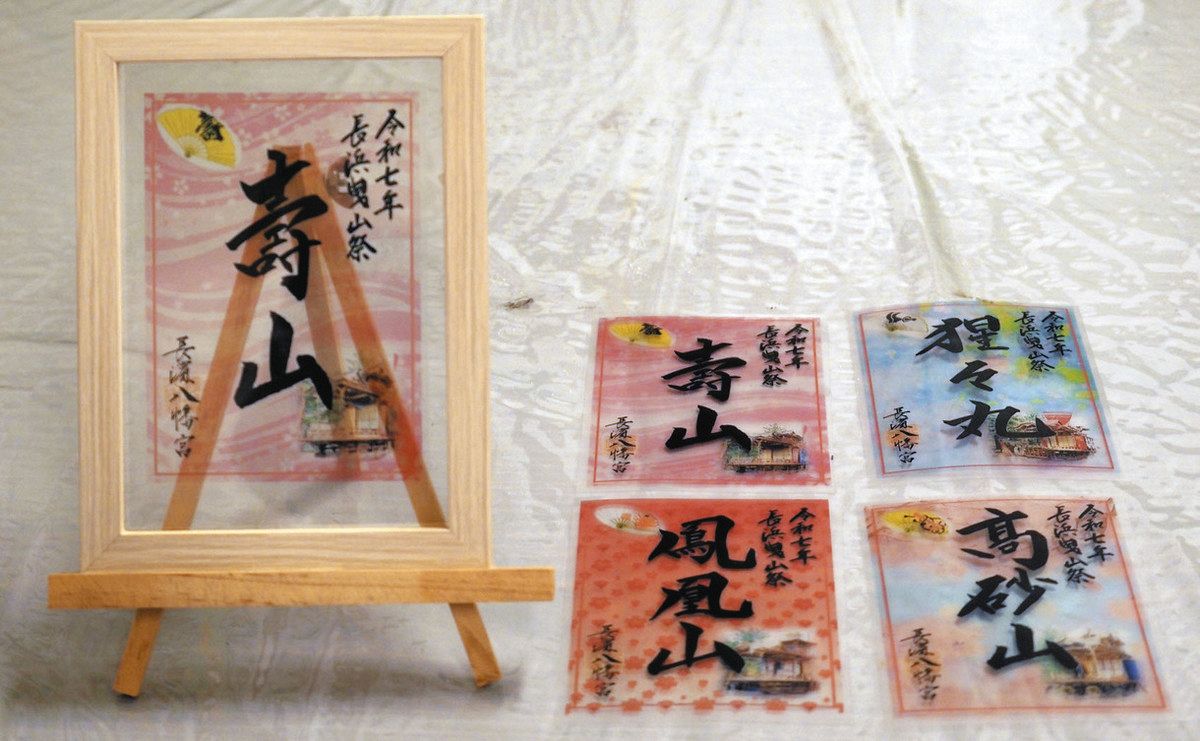 壽
令和七年
長浜曳山祭
壽山
長濵八幡宮
壽
令和七年
長浜曳山祭
壽山
長濵八幡宮
令和七年
長浜曳山祭
猩々丸
長濵八幡宮
令和七年
長浜曳山祭
鳳凰山
長濵八幡宮
令和七年
長浜曳山祭
高砂山
長濵八幡宮